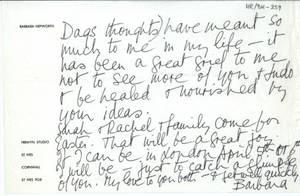 HR/BH-259
BARBARA HEPWORTH
Dags thoughts) have meant so
much to me in my life – it
has been a great grief to me
not to see more of you & Undo
& be healed & nourished by
your ideas.
Sarah & Rachel & family come for
Easter. That will be a great joy.
If I can be in London April 5th or
I will be – just to catch a glimpse
of you. My love to you both – & get well quickly
Barbara
TREWYN STUDIO
ST IVES
CORNWALL
ST IVES 908